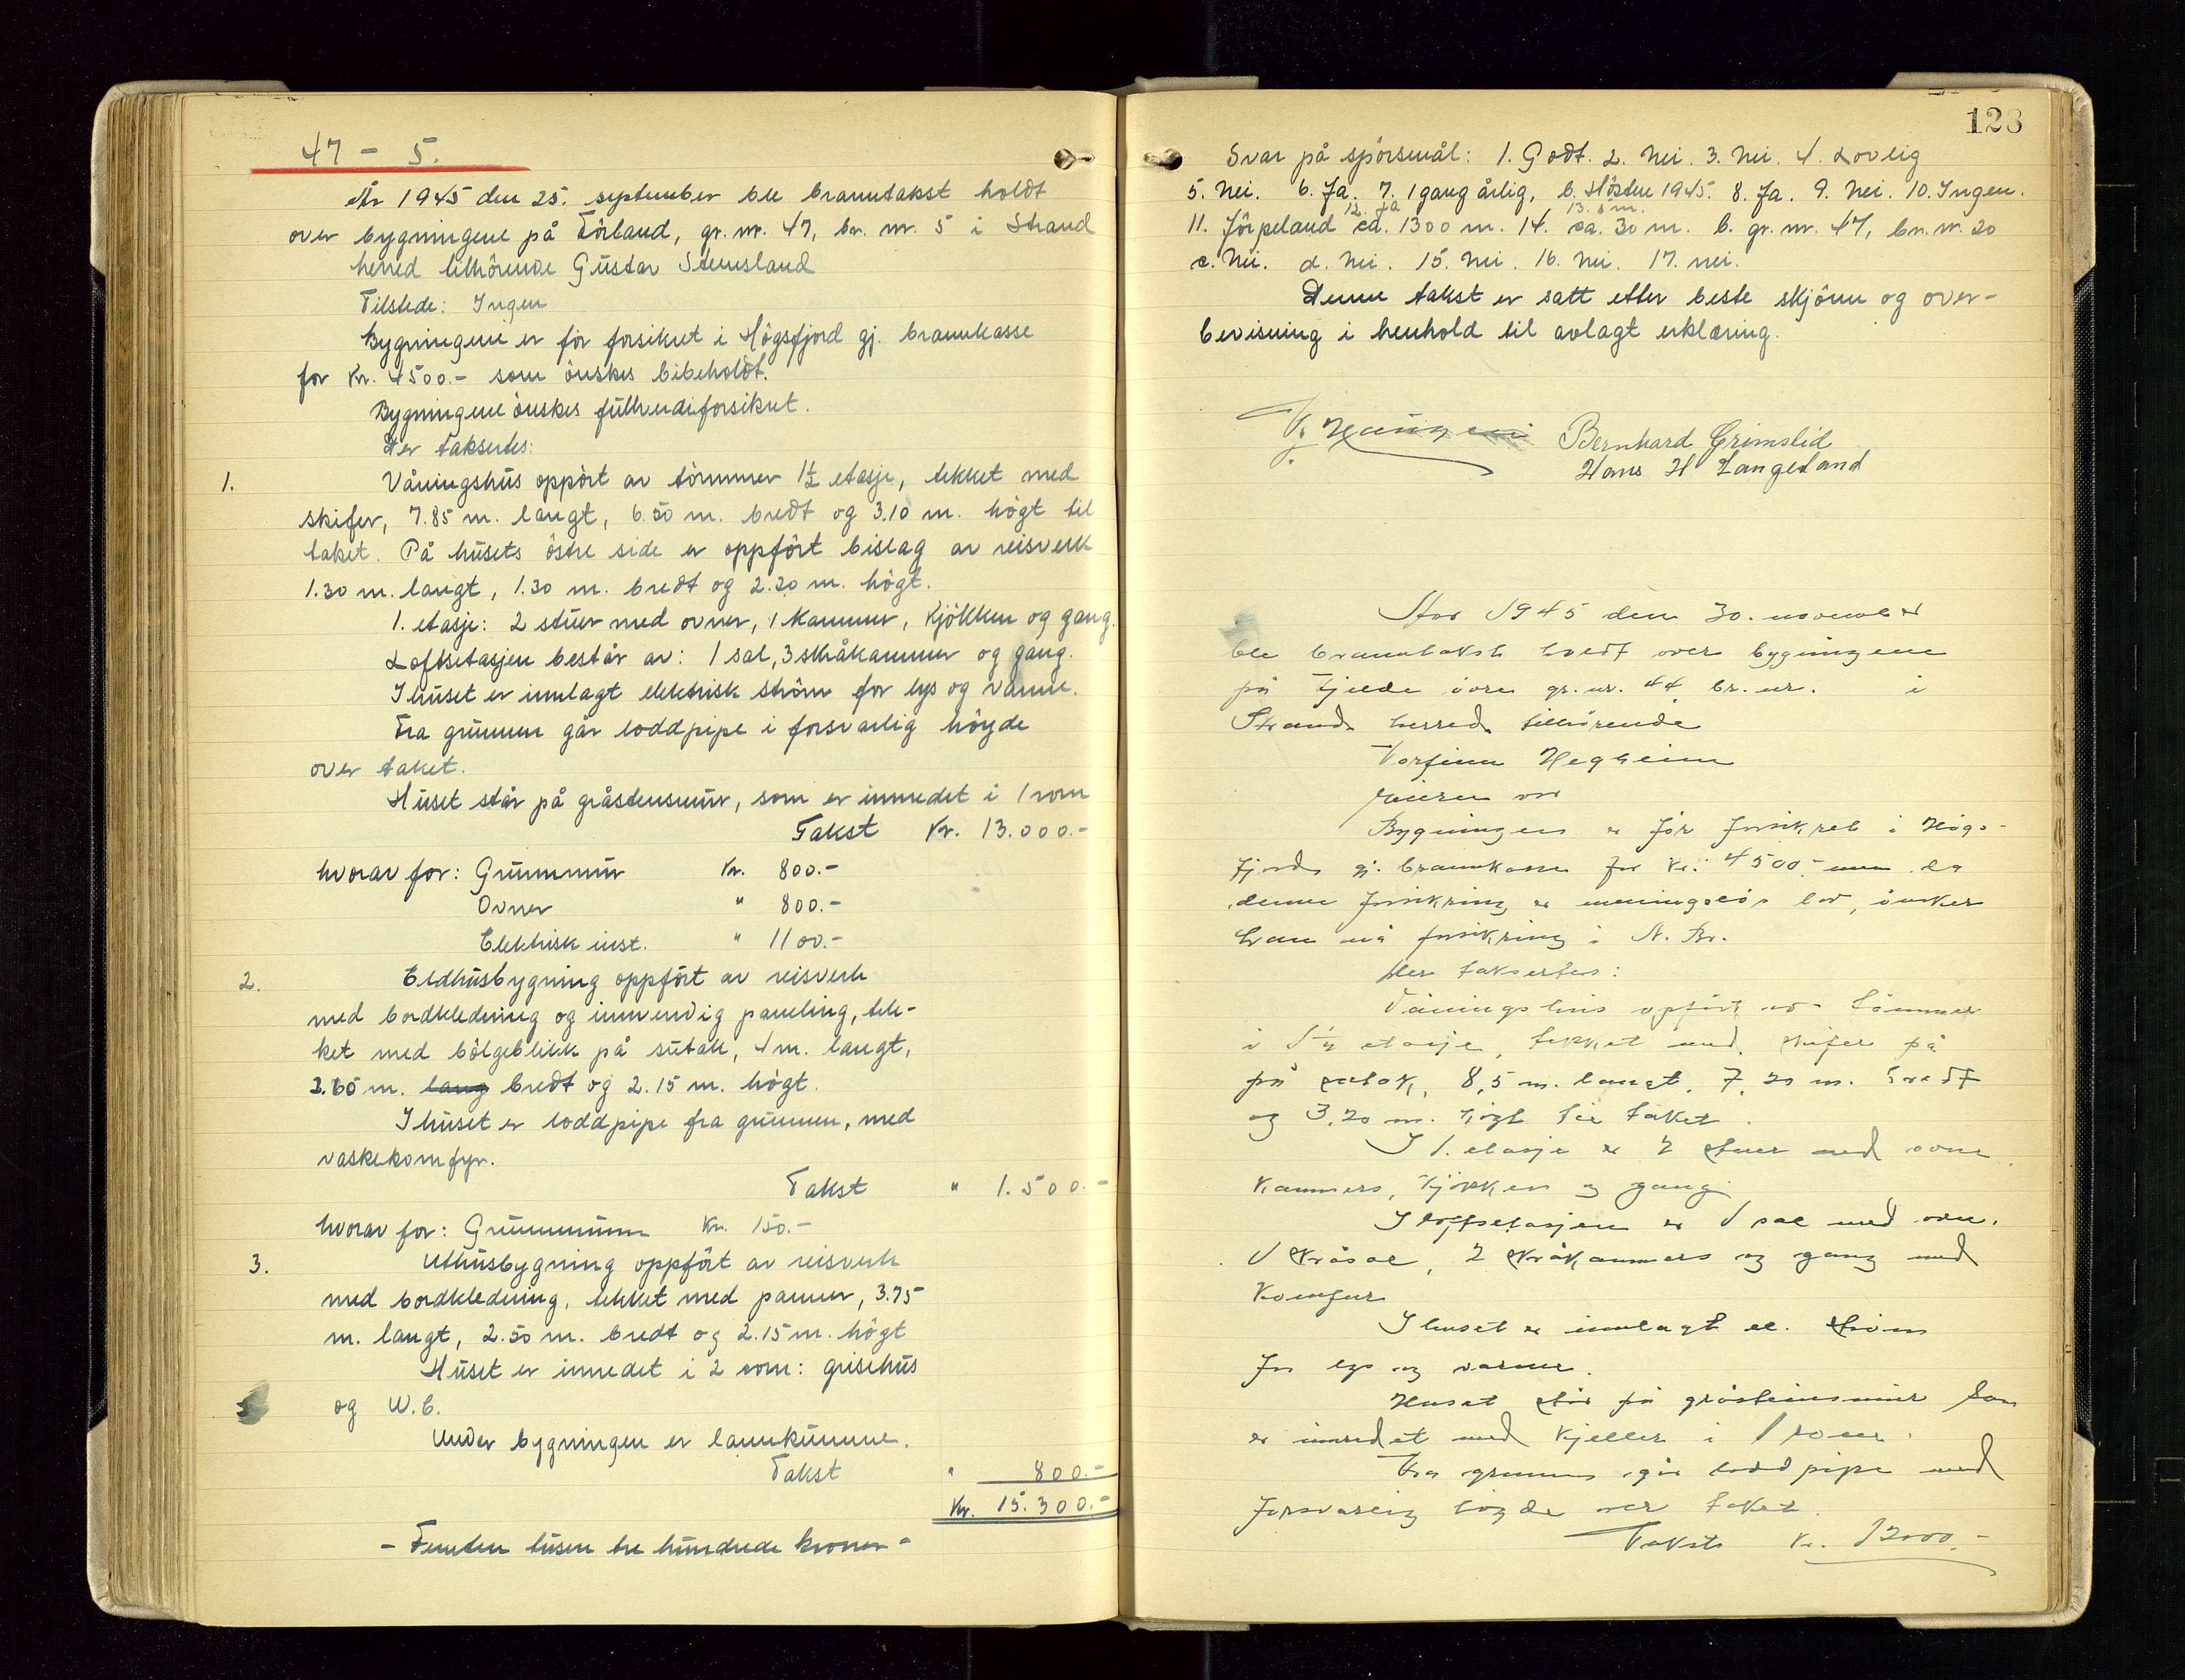 47 - 5.
År 1945 den 25. september ble branntakst holdt
over bygningene på Förland, gr. nr. 47, br. nr. 5 i Strand
herred tilhörende Gustav Stensland
Tilstede: Ingen
Bygningene er för forsikret i Högsfjord gj. brannkasse
for Kr. 4500.- som önskes bibeholdt.
Bygningene önskes fullverdiforsikret.
Der taksertes:
1. Våningshus oppört av tömmer 1½ etasje, tekket med
skifer, 7.85 m. langt, 6.50 m. bredt og 3.10 m. högt til
taket. På husets östre side er oppfört bislag av reisverk
1.30 m. langt, 1.30 m. bredt og 2.20 m. högt.
1. etasje: 2 stuer med ovner, 1 kammer, kjökken og gang.
Loftsetasjen består av: 1 sal, 3 skråkammer og gang.
I huset er innlagt elektrisk ström for lys og varme.
Fra grunnen går loddpipe i forsvarlig höyde
over taket.
Huset står på gråstensmur, som er innredet i 1 rom
Takst Kr. 13.000.-
hvorav for: Grunnmur Kr. 800.-
Ovner " 800.-
Elektrisk inst. " 1100.-
2. Eldhusbygning oppfört av reisverk
med bordkledning og innvendig paneling, tek-
ket med bölgeblikk på sutak, 4 m. langt,
3.65 m. lang bredt og 2.15 m. högt.
I huset er loddpipe fra grunnen, med
vaskekomfyr.
Takst " 1.500.-
hvorav for: Grunnmuren Kr. 150.-
3. Uthusbygning oppfört av reisverk
med bordkledning, tekket med panner, 3.75
m. langt, 2.50 m. bredt og 2.15 m. högt
Huset er innredet i 2 rom: grisehus
og W.C.
Under bygningen er lannkumme.
Takst " 800.-
Kr. 15.300.-
- Femten tusen tre hundrede kroner -
128
Svar på spörsmål: 1. Godt. 2. Nei. 3. Nei. 4. Lovlig
5. Nei. 6. Ja. 7. 1 gang årlig, b. Hösten 1945. 8. Ja. 9. Nei. 10. Ingen.
12. Ja 13. 5 m.
11. Jörpeland ca. 1300 m. 14. ca. 30 m. b. gr. nr. 47, bn. nr. 20
c. Nei. d. Nei. 15. Nei. 16. Nei. 17. nei.
Denne takst er satt etter beste skjönn og over-
bevisning i henhold til avlagt erklæring.
Bernhard Grimslid
Hans H Langeland
1945 den 30. november
ble branntakst holdt over bygningene
på Fjelde övre gr. nr. 44 br. nr. i
Strand herred tilhörende
Torfinn Hegheim
Bygningen er för forsikret i Högs-
fjords gj. brannkasse for Kr. 4500.- men da
denne forsikring er meningslös lav, önsker
han nå forsikring i N. Br.
Der taksertes:
Våningshus oppfört av tömmer
i 1½ etasje, tekket med skifer på
på sutak, 8,5 m. langt, 7,20 m. bredt
og 3,20 m. högt til taket.
I 1. etasje er 2 stuer med ovne
kammers, kjökken og gang
I loftsetasjen er 1 sal med ovn.
1 skråsal, 2 skråkammers og gang med
Komfur
I huset er innlagt el. ström
for lys og varme.
Huset står på gråsteinsmur som
er innredet med kjeller i 1 rom.
Fra grunnen går loddpipe med
forsvarlig höyde over taket.
Takst Kr. 12000.-